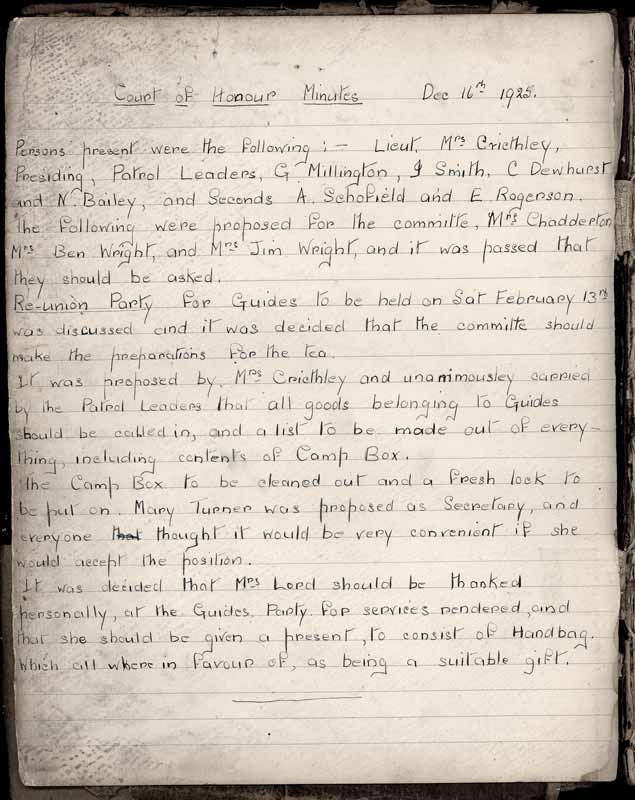 Court of Honour Minutes Dec 16th 1925.
Persons present were the following :- Lieut, Mrs Criethley,
Presiding, Patrol Leaders, G Millington, I Smith, C Dewhurst
and N. Bailey, and Seconds A. Schofield and E. Rogerson.
The following were proposed for the committe, Mrs Chadderton
Mrs Ben Wright, and Mrs Jim Wright, and it was passed that
they should be asked.
Re-union Party for Guides to be held on Sat February 13th
was discussed and it was decided that the committe should
make the preparations for the tea.
It was proposed by, Mrs Criethley and unanimousley carried
by the Patrol Leaders that all goods belonging to Guides
should be called in, and a list to be made out of every-
thing, including contents of Camp Box.
The Camp Box to be cleaned out and a fresh lock to
be put on. Mary Turner was proposed as Secretary, and
everyone that thought it would be very convenient if she
would accept the position.
It was decided that Mrs Lord should be thanked
personally, at the Guides. Party. for services rendered, and
that she should be given a present, to consist of Handbag.
Which all where in favour of, as being a suitable gift.